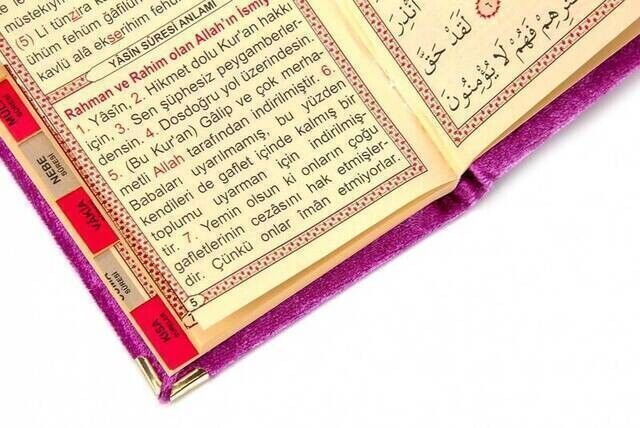 nüstekıym
ühüm fehüm ğâfilûn
(5) Li tünzira
kavlü alâ ekserihim fehüm
YÂSİN SÛRESİ ANLAMI
Rahman ve Rahim olan Allah'ın İsmiy
1. Yâsîn, 2. Hikmet dolu Kur'an hakkı
için, 3. Sen şüphesiz peygamberler-
densin. 4. Dosdoğru yol üzerindesin.
5. (Bu Kur'an) Gâlip ve çok merha-
metli Allah tarafından indirilmiştir. 6.
Babaları uyarılmamış, bu yüzden
kendileri de gaflet içinde kalmış bir
toplumu uyarman için indirilmiş-
tir. 7. Yemin olsun ki onların çoğu
gafletlerinin cezâsını hak etmişler-
dir. Çünkü onlar îmân etmiyorlar.
5
لَقَدْ حَقَّ
فَهُمْ لَا يُؤْمِنُونَ
SÛRESİ
NEBE
SÛRESİ
VÂKIA
SÛRESİ
KISA
SURELER